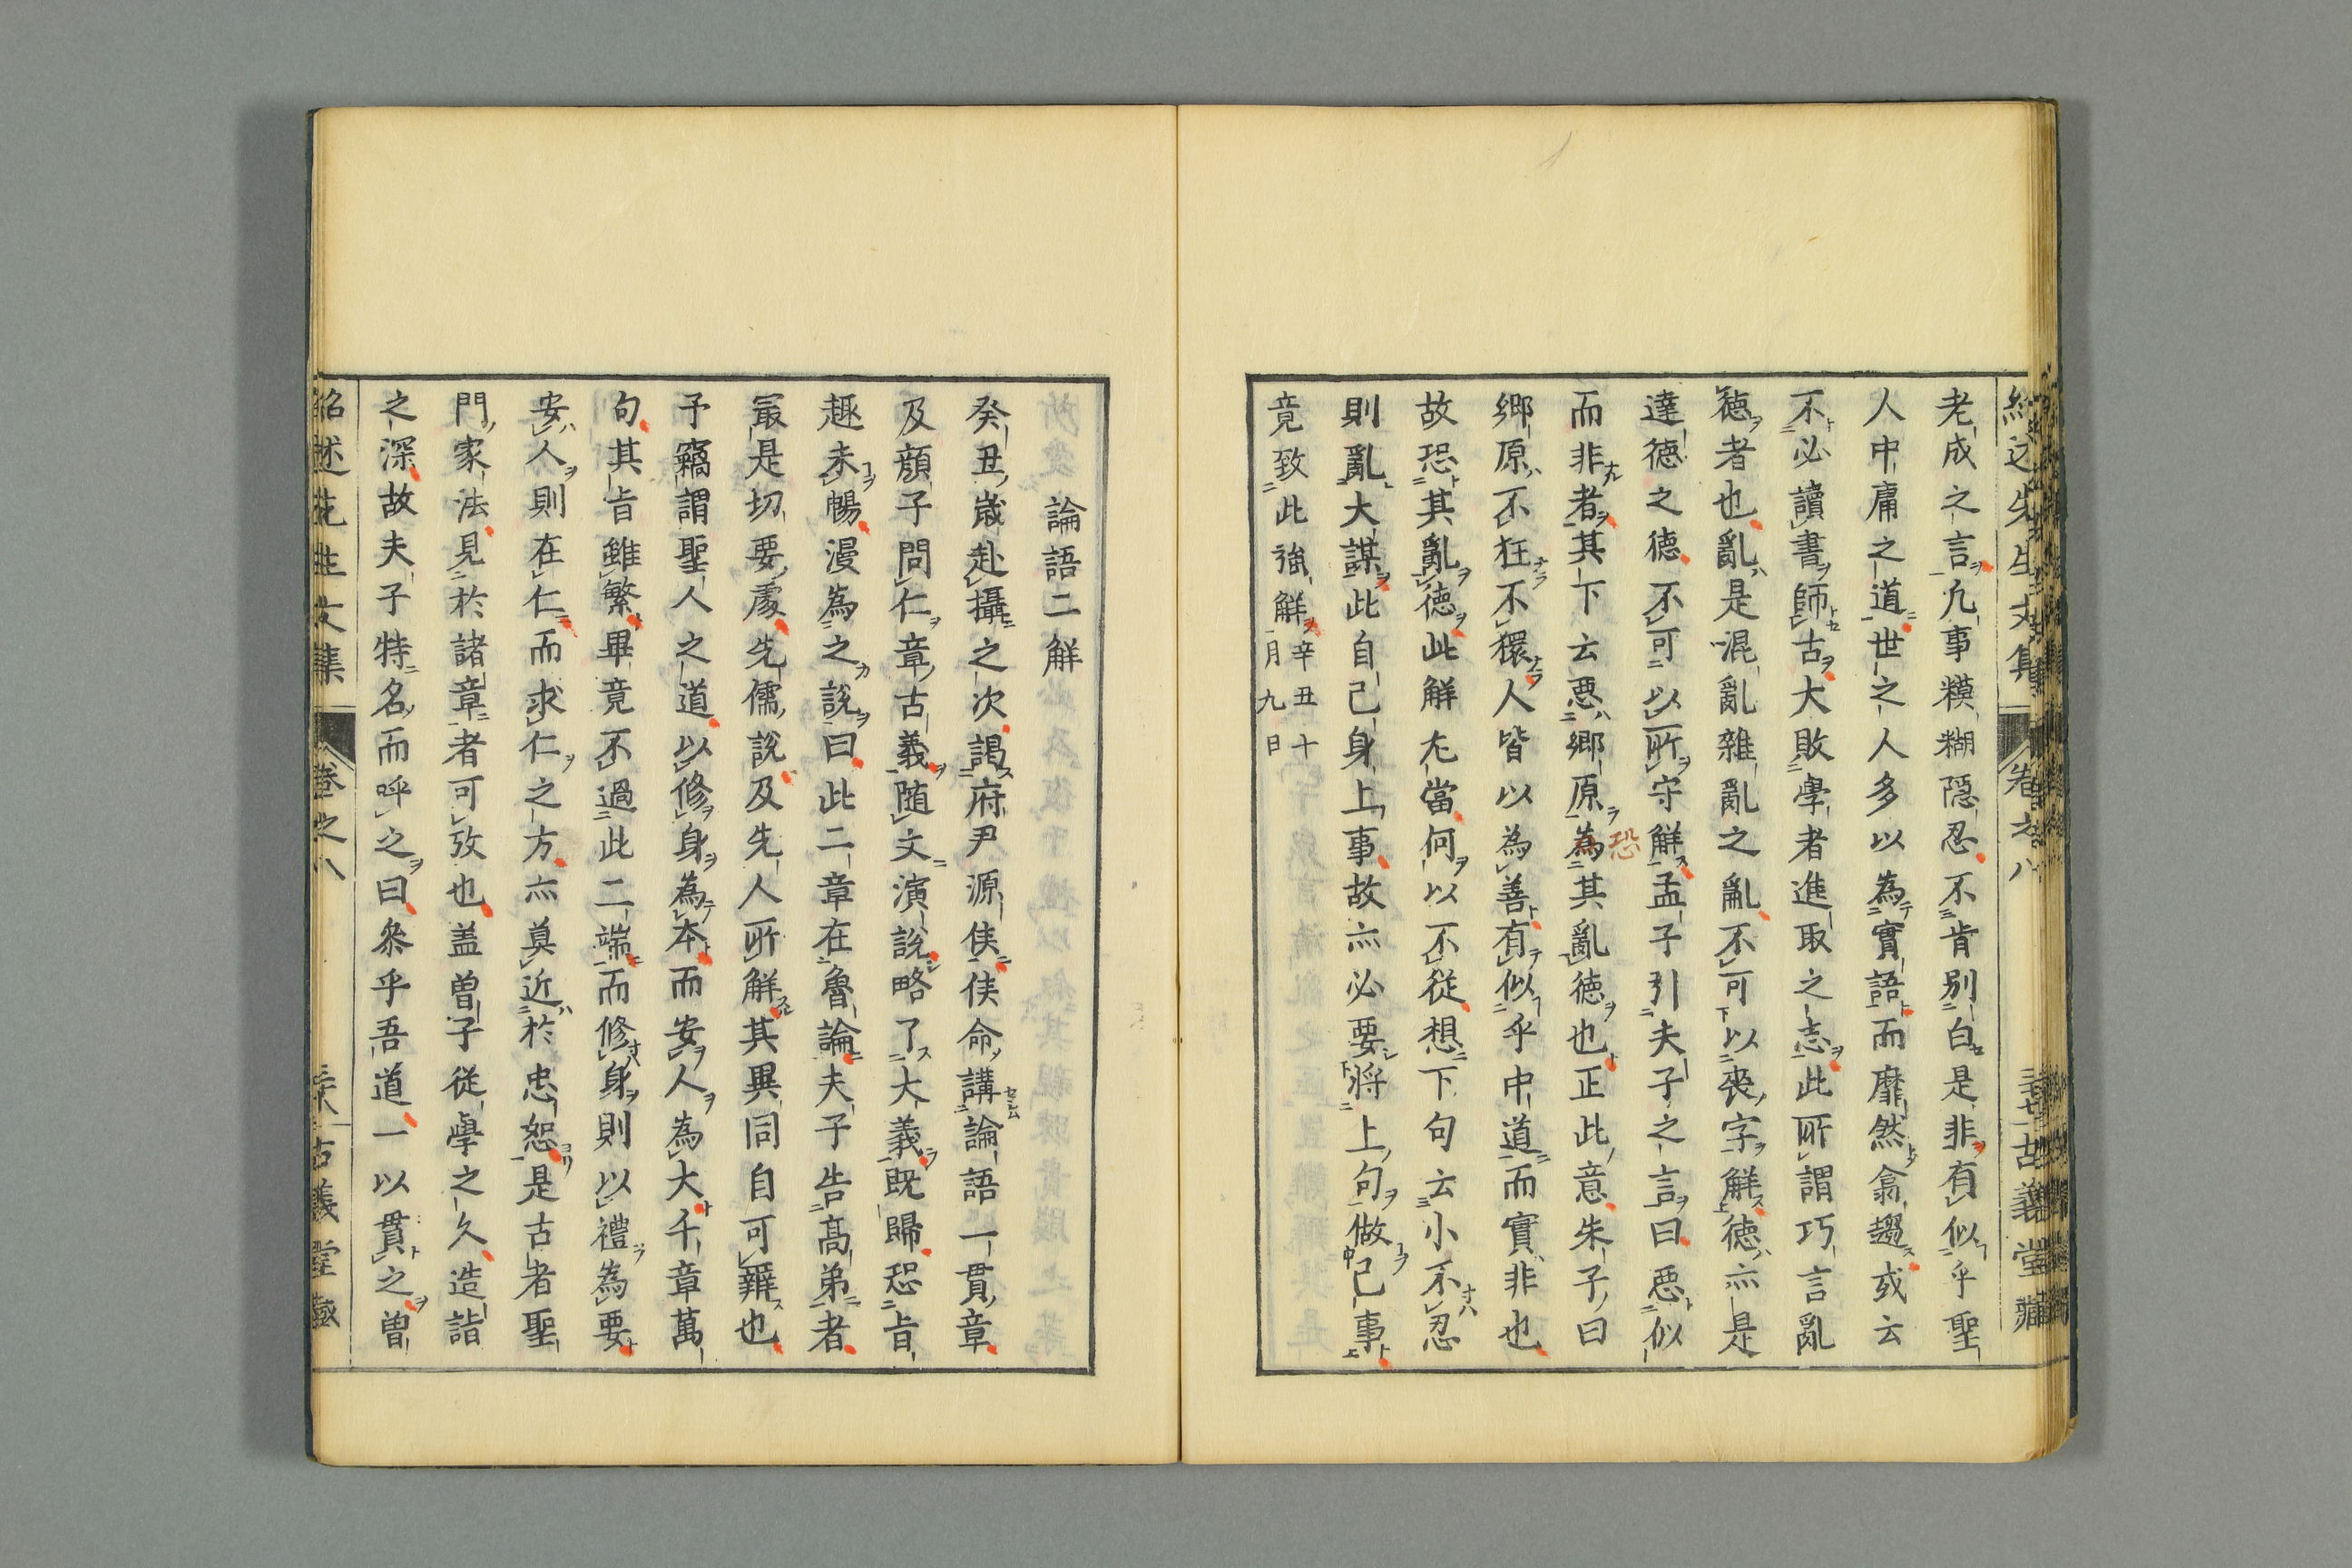 紹述先生文集 卷之八 古義堂藏
老成之言凢事糢糊隱忍不肯別白是非有似乎聖
人中庸之道世之人多以為實語而靡然翕趨或云
不必讀書師古大敗學者進取之志此所謂巧言亂
德者也亂是混亂雜亂之亂不可以喪字解德亦是
達德之德不可以所守解孟子引夫子之言曰惡似
而非者其下云惡鄉原為其亂德也正此意朱子曰
恐
鄉原不狂不獧人皆以為善有似乎中道而實非也
故恐其亂德此解尤當何以不從想下句云小不忍
則亂大謀此自己身上事故亦必要將上句做己事
竟致此強解辛丑十
月九日
論語二解
癸丑歲赴攝之次謁府尹源侯侯命講論語一貫章
及顏子問仁章古義隨文演說略了大義既歸恐旨
趣未暢漫為之說曰此二章在魯論夫子告高弟者
最是切要處先儒說及先人所解其異同自可辨也
予竊謂聖人之道以修身為本而安人為大千章萬
句其旨雖繁畢竟不過此二端而修身則以禮為要
安人則在仁而求仁之方亦莫近於忠恕是古者聖
門家法見於諸章者可攷也盖曽子從學之久造詣
之深故夫子特名而呼之曰參乎吾道一以貫之曽
紹述先生文集 卷之八 古義堂藏